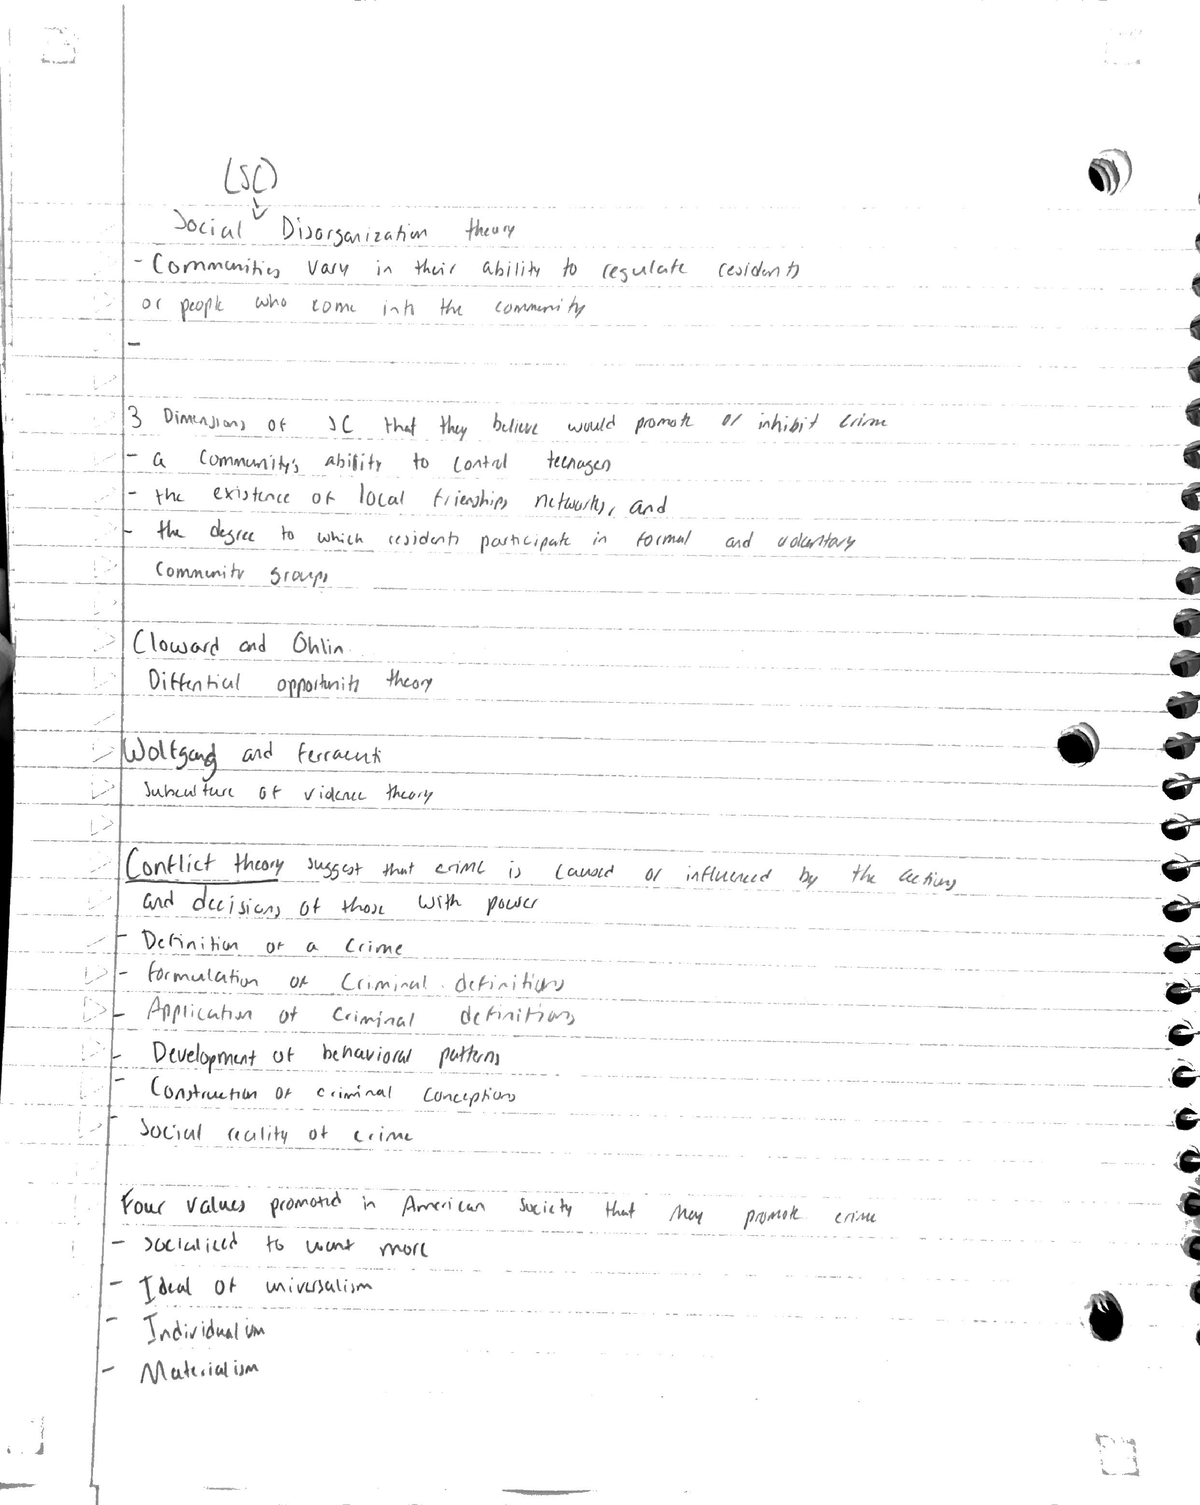 (SC)
Social Disorganization theory
- Communities vary in their ability to regulate residents
or people who come into the community
-
3 Dimensions of SC that they believe would promote or inhibit crime
- a community's ability to control teenagers
- the existence of local frienships networks, and
- the degree to which residents participate in formal and voluntary
Community groups
Cloward and Ohlin
Diffential opportunity theory
Wolfgang and Ferracuti
Subculture of violence theory
Conflict theory suggest that crime is caused or influenced by the actions
and decisions of those with power
- Definition of a Crime
- Formulation of Criminal definitions
- Application of Criminal definitions
- Development of behavioral patterns
- Construction of criminal conceptions
- Social reality of crime
Four values promoted in American society that may promote crime
- Socialized to want more
- Ideal of universalism
- Individualism
- Materialism